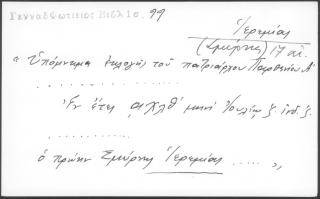 Γενναδίωτισσας Βιβλιο. 99
Ἱερεμίας
(Σμύρνης) 17 αἰ.
"Ὑπόμνημα ἐκλογῆς τοῦ πατριάρχου Παρθενίου Α΄
. . . . . . . . . .
Ἐν ἔτει αχλθ΄ μηνὶ Ἰουλίῳ ζ. ἰνδ. ζ.
. . . . . . . . . . . . .
ὁ πρώην Σμύρνης Ἱερεμίας ..... "